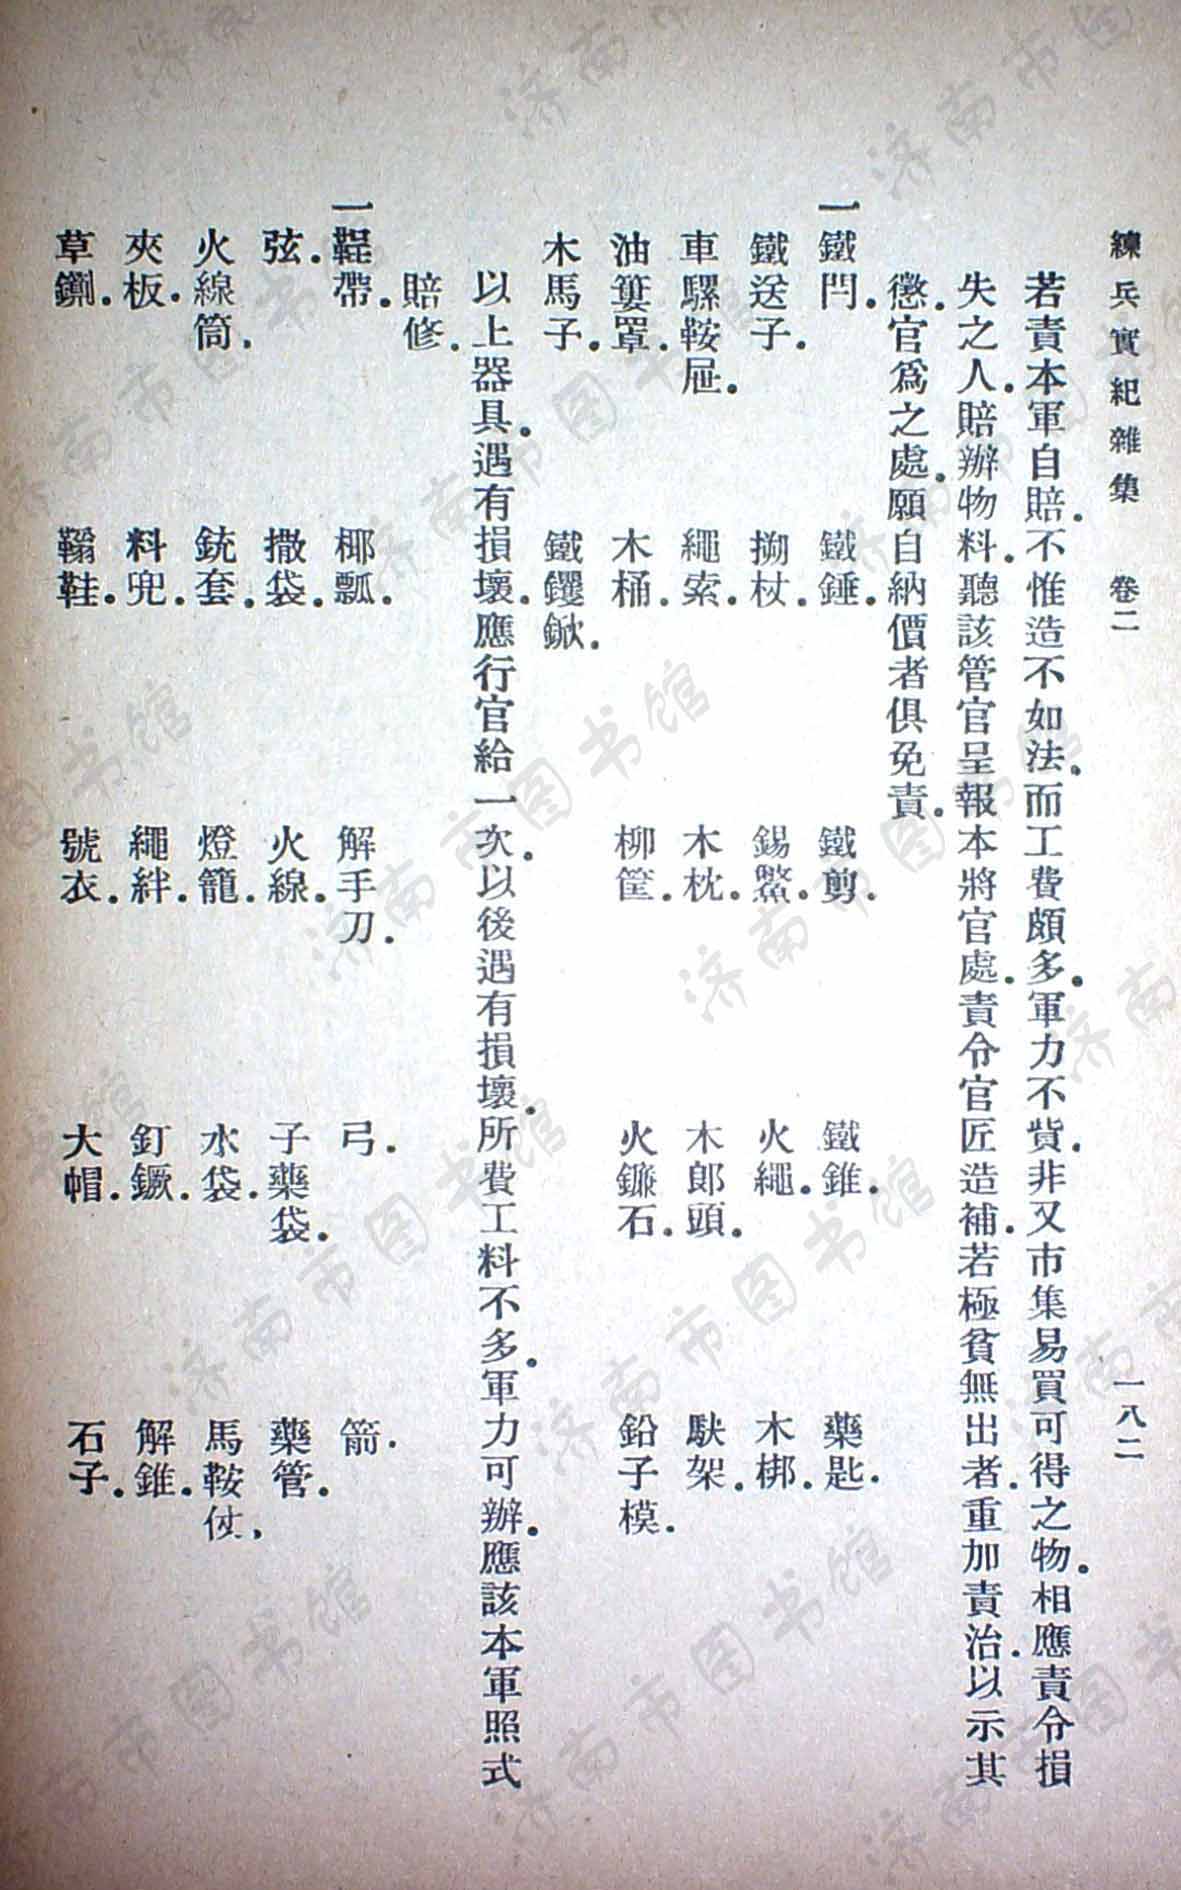 練兵實紀雜集 卷二 一八二
若責本軍自賠.不惟造不如法.而工費頗多.軍力不貲.非又市集易買可得之物.相應責令損
失之人.賠辦物料.聽該管官呈報本將官處.責令官匠造補.若極貧無出者.重加責治.以示其
懲.官爲之處.願自納價者俱免責.
一鐵閂. 鐵錘. 鐵剪. 鐵錐. 藥匙.
鐵送子. 搠杖. 錫鱉. 火繩. 木梆.
車騾鞍屜. 繩索. 木枕. 木郎頭. 馱架.
油簍罩. 木桶. 柳筐. 火鐮石. 鉛子模.
木馬子. 鐵钁鍁.
以上器具.遇有損壞.應行官給一次.以後遇有損壞.所費工料不多.軍力可辦.應該本軍照式
賠修.
一鞓帶. 椰瓢. 解手刀. 弓. 箭.
弦. 撒袋. 火線. 子藥袋. 藥管.
火線筒. 銃套. 燈籠. 水袋. 馬鞍仗.
夾板. 料兜. 繩絆. 釘鐝. 解錐.
草鍘. 鞋. 號衣. 大帽. 石子.
济南市图书馆